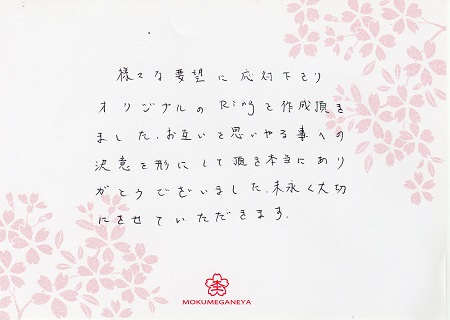 様々な要望に応対下さり
オリジナルのRingを作成頂き
ました。お互いを思いやる事への
決意を形にして頂き本当にあり
がとうございました。末永く大切
にさせていただきます。
MOKUMEGANEYA